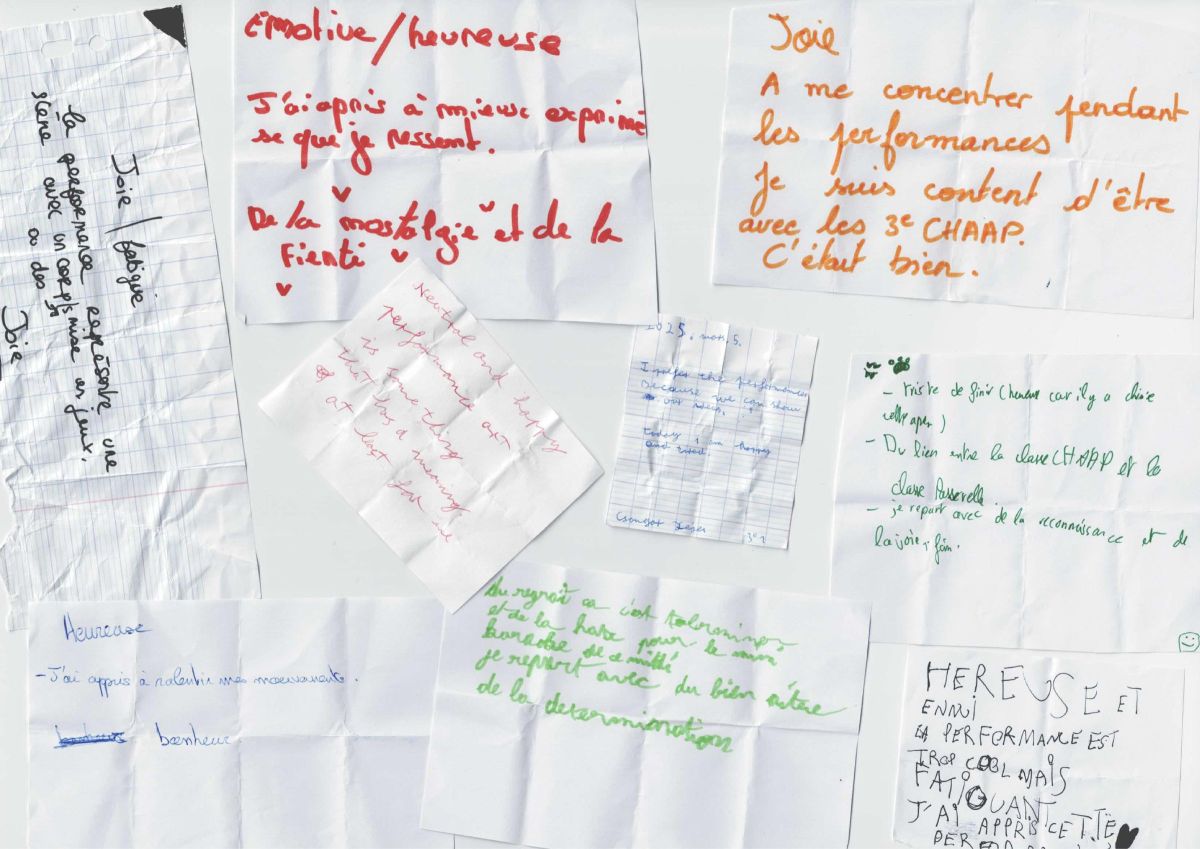 Joie / fatigue
la performance représente une
scène avec un corp/s mise en jeux.
ou des
Joie
Emotive/heureuse
J'ai apris à mieux exprimé
se que je ressent.
De la nostalgie et de la
Fierté
Joie
A me concentrer pendant
les performances
Je suis content d'être
avec les 3e CHAAP.
C'était bien.
Neutral and happy
performance art
is something
that has a meaning
at least for me
2025. mars 5.
I prefer the performances
because we can show
our
today I am happy
and
3e2
- triste de finir (heureux car il y a
- Du lien entre la classe CHAAP et la
classe Passerelle.
- je repart avec de la reconnaissance et de
la joie, fin.
Heureuse
- J'ai appris à ralentir mes mouvements.
bonheur
du regrait ca c'est
et de la hate pour le
je repart avec du bien aitre
de la determination
HEREUSE ET
ENNUI
LA PERFORMANCE EST
TROP COOL MAIS
FATIGUANT
J'AI APPRIS CETTE